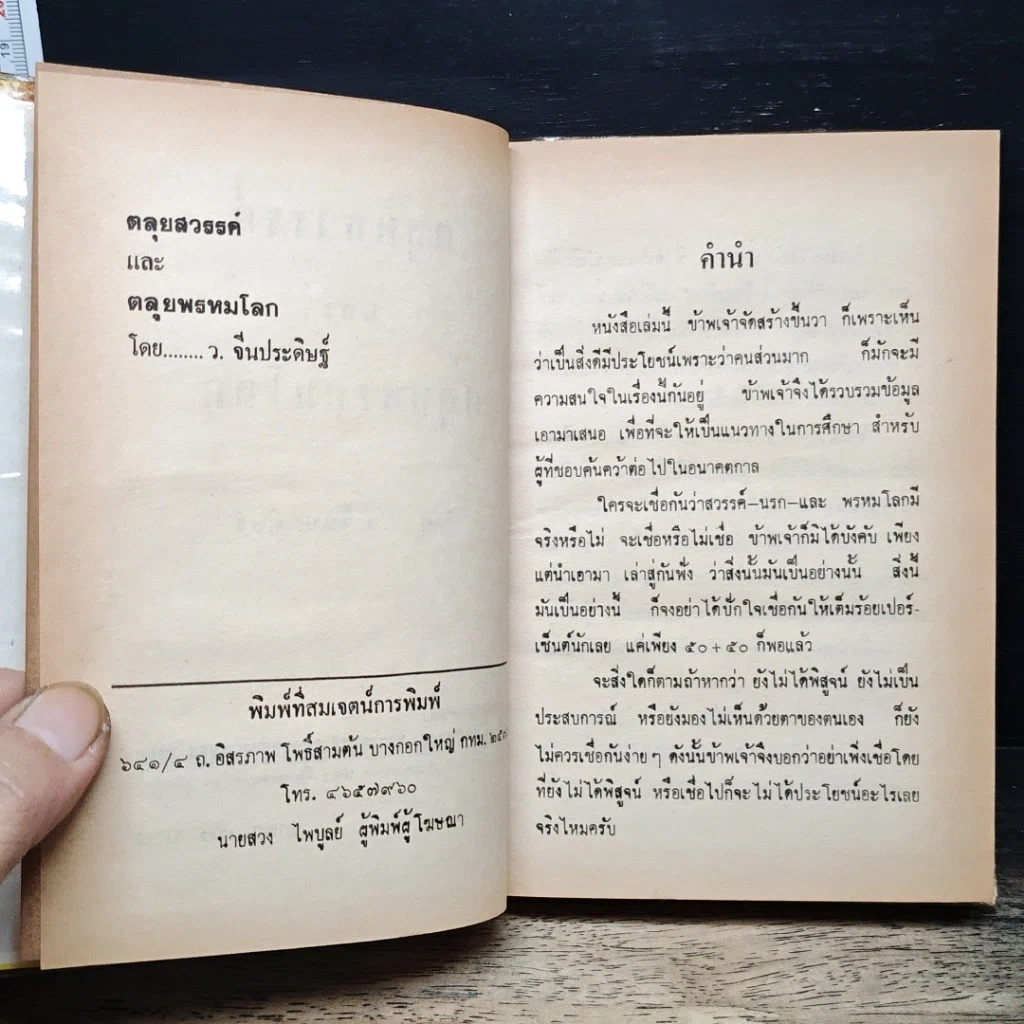 ตลุยสวรรค์
และ
ตลุยพรหมโลก
โดย........ ว. จีนประดิษฐ์
พิมพ์ที่สมเจตน์การพิมพ์
๖๔๑/๔ ถ. อิสรภาพ โพธิ์สามต้น บางกอกใหญ่ กทม.
โทร. ๔๖๕๗๙๖๐
นายสวง ไพบูลย์ ผู้พิมพ์ผู้โฆษณา
คำนำ
หนังสือเล่มนี้ ข้าพเจ้าจัดสร้างขึ้นวา ก็เพราะเห็น
ว่าเป็นสิ่งดีมีประโยชน์เพราะว่าคนส่วนมาก ก็มักจะมี
ความสนใจในเรื่องนี้กันอยู่ ข้าพเจ้าจึงได้รวบรวมข้อมูล
เอามาเสนอ เพื่อที่จะให้เป็นแนวทางในการศึกษา สำหรับ
ผู้ที่ชอบค้นคว้าต่อไปในอนาคตกาล
ใครจะเชื่อกันว่าสวรรค์–นรก–และ พรหมโลกมี
จริงหรือไม่ จะเชื่อหรือไม่เชื่อ ข้าพเจ้าก็มิได้บังคับ เพียง
แต่นำเอามา เล่าสู่กันฟัง ว่าสิ่งนั้นมันเป็นอย่างนั้น สิ่งนี้
มันเป็นอย่างนี้ ก็จงอย่าได้ปักใจเชื่อกันให้เต็มร้อยเปอร์-
เซ็นต์นักเลย แค่เพียง ๕๐ + ๕๐ ก็พอแล้ว
จะสิ่งใดก็ตามถ้าหากว่า ยังไม่ได้พิสูจน์ ยังไม่เป็น
ประสบการณ์ หรือยังมองไม่เห็นด้วยตาของตนเอง ก็ยัง
ไม่ควรเชื่อกันง่าย ๆ ดังนั้นข้าพเจ้าจึงบอกว่าอย่าเพิ่งเชื่อโดย
ที่ยังไม่ได้พิสูจน์ หรือเชื่อไปก็จะไม่ได้ประโยชน์อะไรเลย
จริงไหมครับ